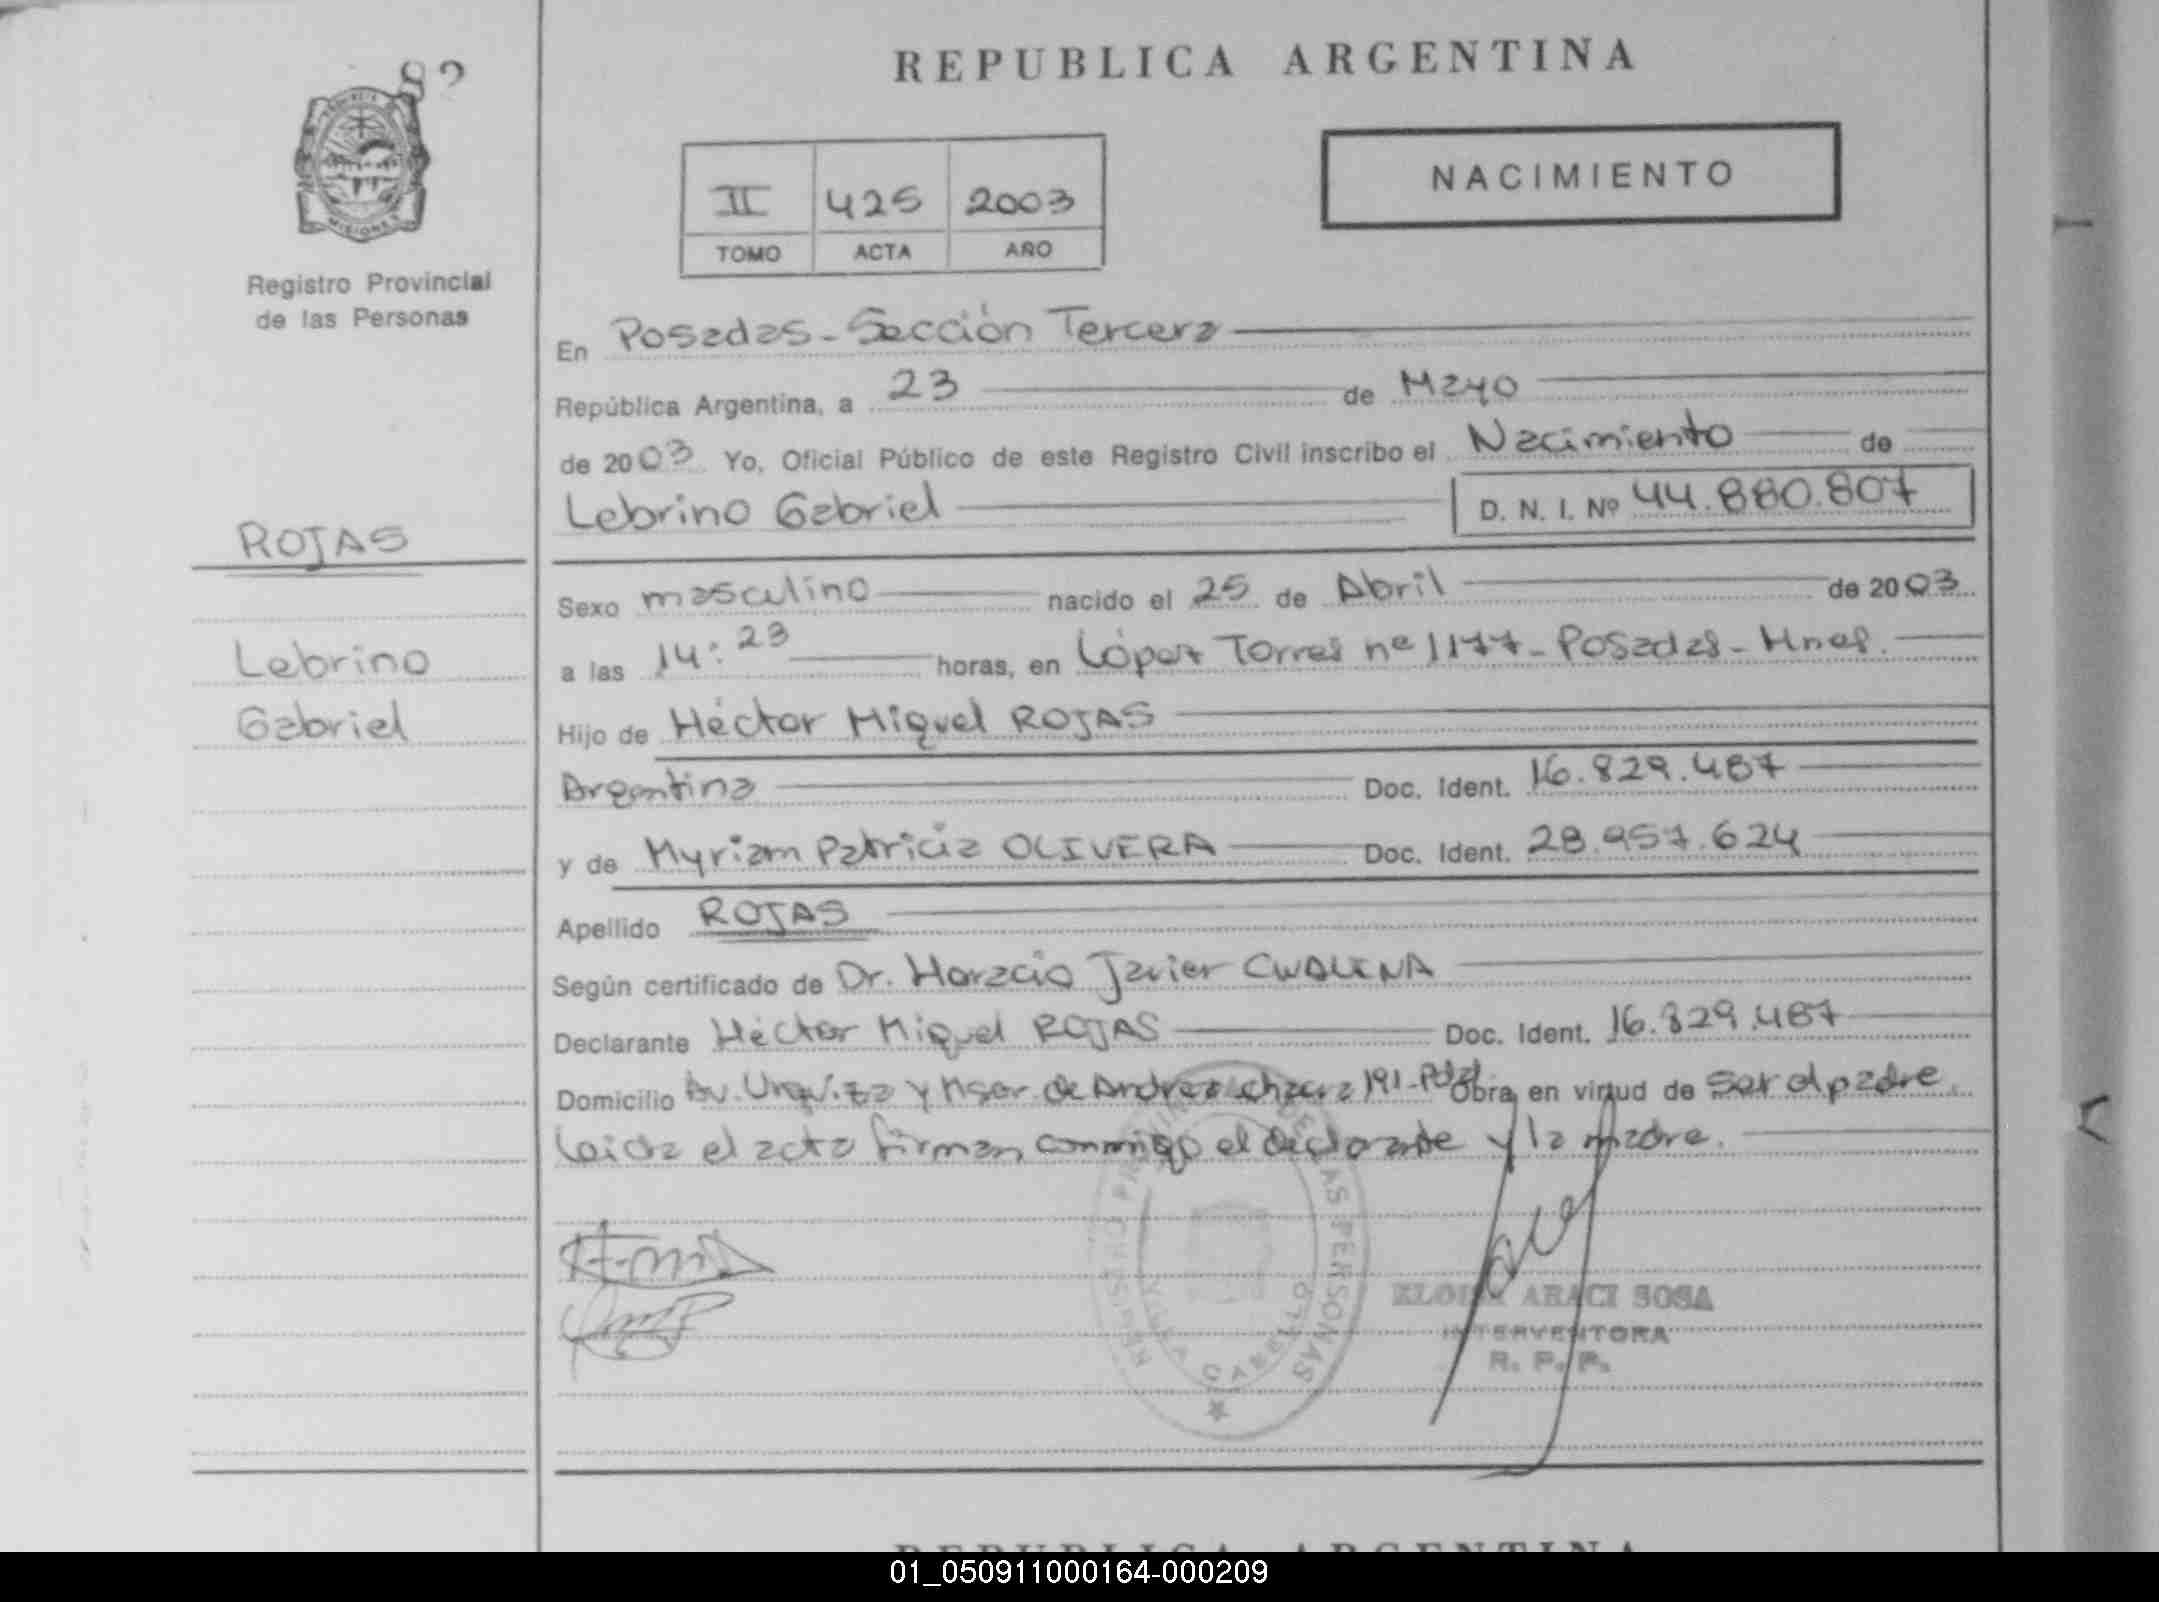 82
REPUBLICA ARGENTINA
PROVINCIA DE MISIONES
Registro Provincial
de las Personas
II 425 2003
TOMO ACTA AÑO
NACIMIENTO
En Posadas - Sección Tercera
República Argentina, a 23 de Mayo
de 2003 Yo, Oficial Público de este Registro Civil inscribo el Nacimiento de
Lebrino Gabriel D. N. I. Nº 44.880.807
ROJAS
Lebrino
Gabriel
Sexo masculino nacido el 25 de Abril de 2003
a las 14:23 horas, en López Torres nº 1177 - Posadas - Mnes.
Hijo de Héctor Miguel ROJAS
Argentina Doc. Ident. 16.829.487
y de Myriam Patricia OLIVERA Doc. Ident. 28.957.624
Apellido ROJAS
Según certificado de Dr. Horacio Javier CWALINA
Declarante Héctor Miguel ROJAS Doc. Ident. 16.829.487
Domicilio Av. Urquiza y Msor. de Andrea chacra 191 - Pdas Obra en virtud de ser el padre.
Leida el acta firman conmigo el declarante y la madre.
REGISTRO PROVINCIAL DE LAS PERSONAS
VILLA CABELLO
ELOISA ARACI SOSA
INTERVENTORA
R. P. P.
REPUBLICA ARGENTINA
01_050911000164-000209